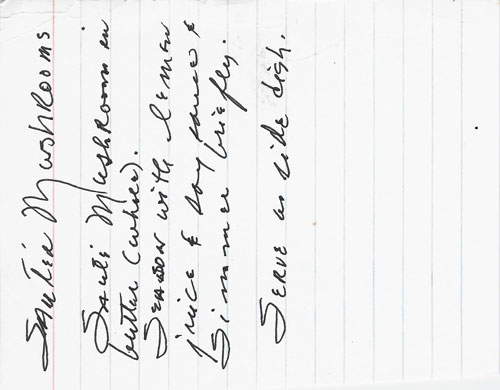 Sautéed Mushrooms
Sauté Mushrooms in
butter (whole).
Season with lemon
juice & soy sauce &
Simmer briefly.
Serve as side dish.